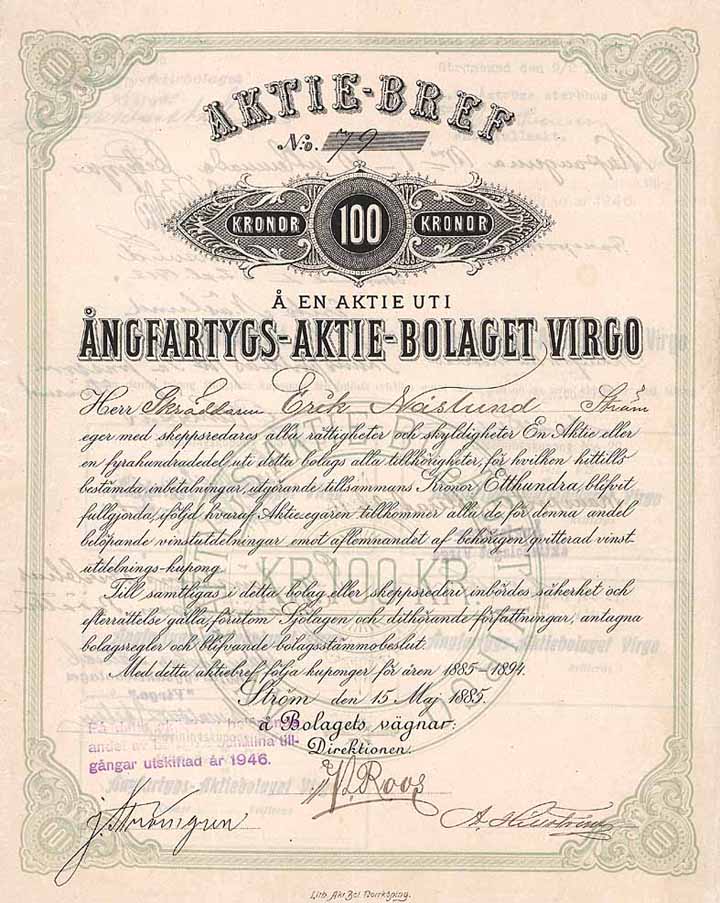 AKTIE-BREF
No. 79
KRONOR 100 KRONOR
Å EN AKTIE UTI
ÅNGFARTYGS-AKTIE-BOLAGET VIRGO
Herr Skräddaren Erik Näslund Ström
eger med skeppsredares alla rättigheter och skyldigheter En Aktie eller
en fyrahundradedel uti detta bolags alla tillhörigheter, för hvilken hittills
bestämda inbetalningar, utgörande tillsammans Kronor Etthundra, blifvit
fullgjorda, iföljd hvaraf Aktieegaren tillkommer alla de för denna andel
belöpande vinstutdelningar emot aflemnandet af behörigen qvitterad vinst-
utdelnings-kupong.
Till samtligas i detta bolag eller skeppsrederi inbördes säkerhet och
efterrättelse gälla, förutom Sjölagen och dithörande författningar, antagna
bolagsregler och blifvande bolagsstämmobeslut.
Med detta aktiebref följa kuponger för åren 1885-1894.
Ström den 15 Maj 1885.
å Bolagets vägnar:
Direktionen.
KR 100 KR
andel av
till-
gångar utskiftad år 1946.
Roos
Lith. Akt. Bol. Norrköping.
100
100
100
100